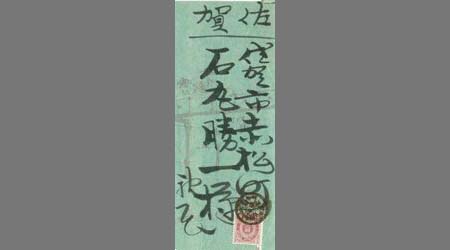 佐賀
佐賀市赤松町
石丸勝一様